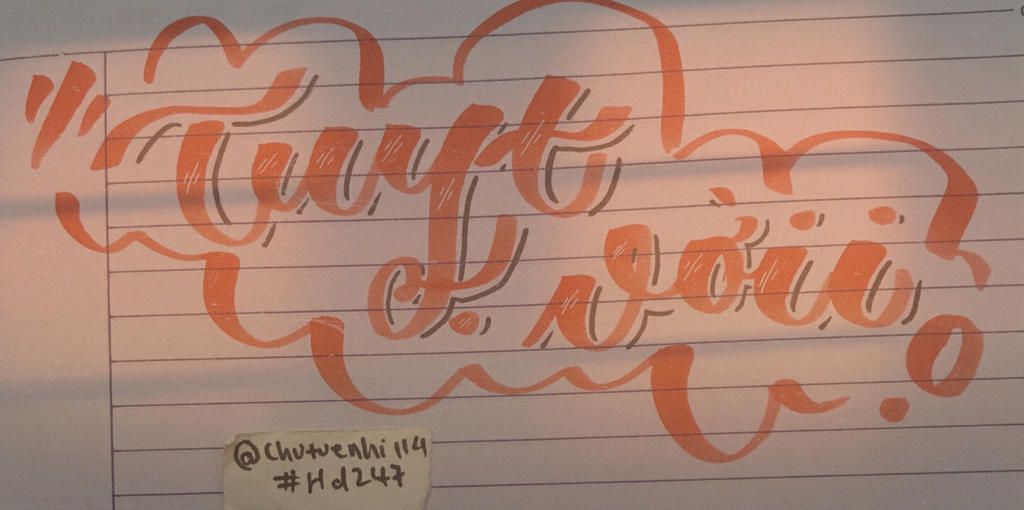 Tuỵt
vờii
@chutuenhi114
#Hd247